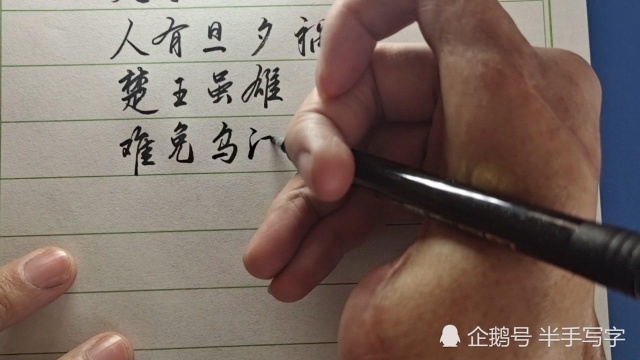 人有旦夕祸
楚王虽雄
难免乌江
企鹅号 半手写字